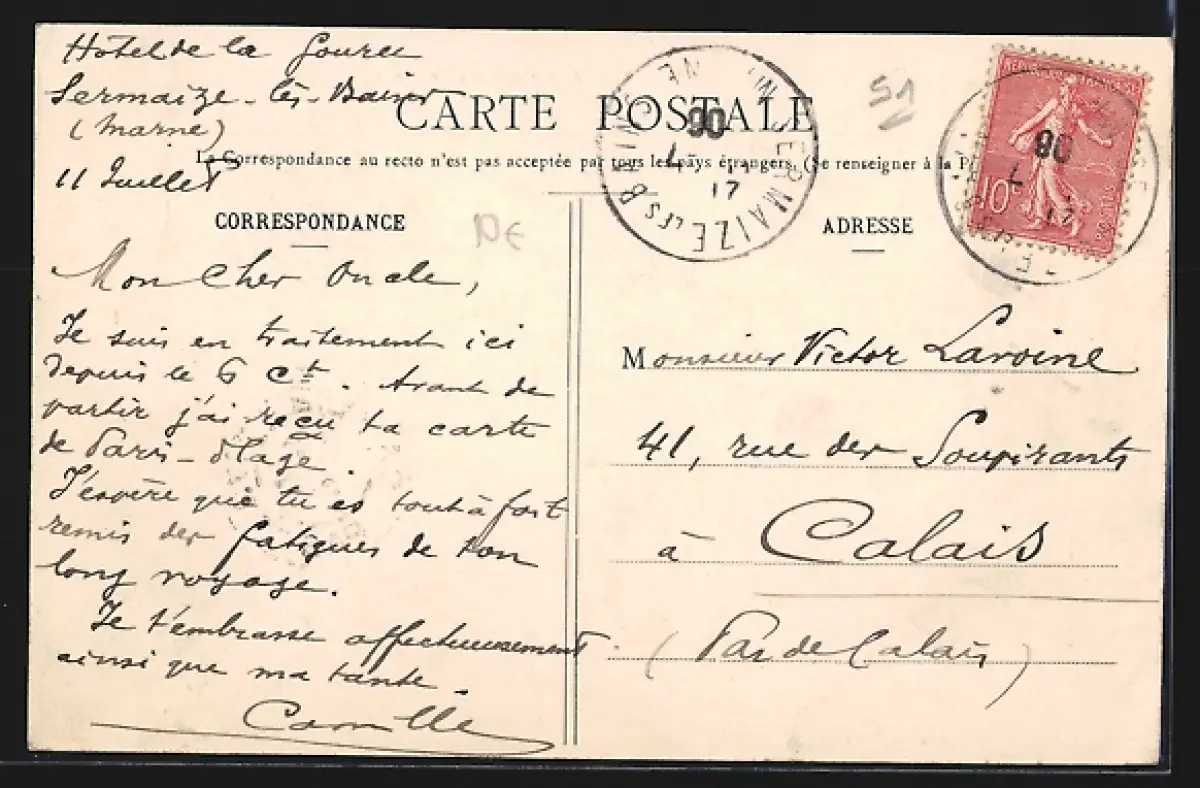 Hôtel de la Source
Sermaize-les-Bains
(Marne)
11 Juillet
CARTE POSTALE
La Correspondance au recto n'est pas acceptée par tous les pays étrangers. (Se renseigner à la P
CORRESPONDANCE
Mon Cher Oncle,
Je suis en traitement ici
depuis le 6 ct. Avant de
partir j'ai reçu ta carte
de Paris-Plage.
J'espère que tu es tout à fait
remis des fatigues de ton
long voyage.
Je t'embrasse affectueusement
ainsi que ma tante.
Camille
SERMAIZE LES BAINS
17
7
06
51
DE
ADRESSE
10c
17
7
06
Monsieur Victor Lavoine
41, rue des Soupirants
à Calais
(Pas de Calais)